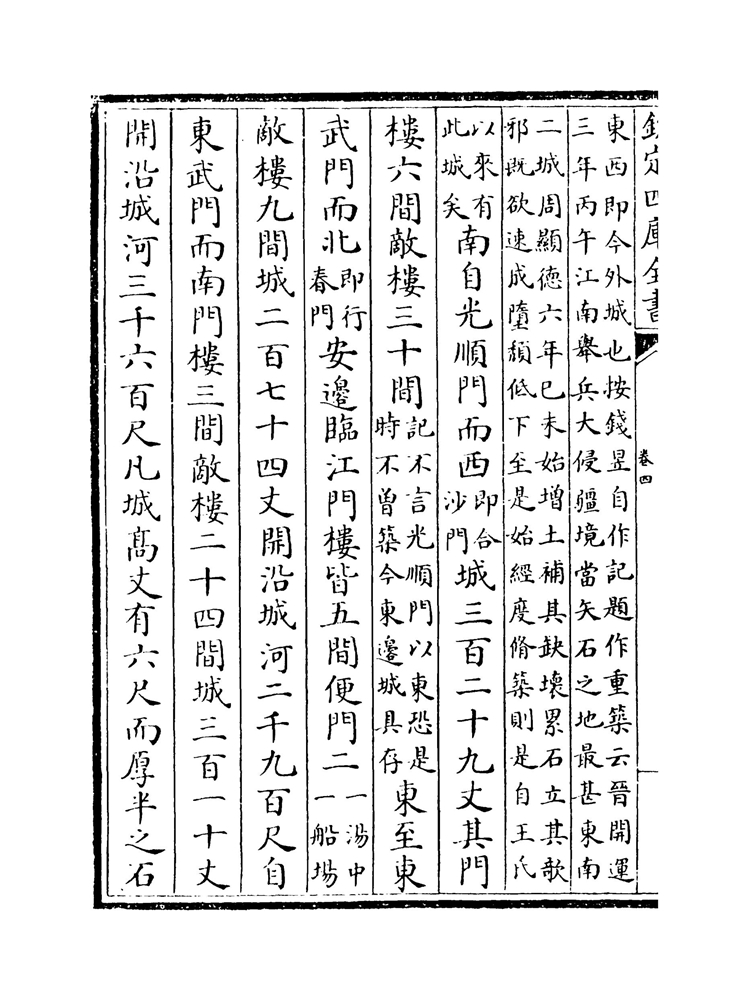 欽定四庫全書
卷四
東西即今外城也按錢昱自作記題作重築云晉開運
三年丙午江南舉兵大侵疆境當矢石之地最甚東南
二城周顯德六年已未始增土補其缺壞累石立其欹
邪既欲速成墮頹低下至是始經度脩築則是自王氏
以來有此城矣南自光順門而西即合沙門城三百二十九丈其門
樓六間敵樓三十間記不言光順門以東恐是時不曾築今東邊城具存東至東
武門而北即行春門安邊臨江門樓皆五間便門二一湯中一船場
敵樓九間城二百七十四丈開沿城河二千九百尺自
東武門而南門樓三間敵樓二十四間城三百一十丈
開沿城河三千六百尺凡城髙丈有六尺而厚半之石